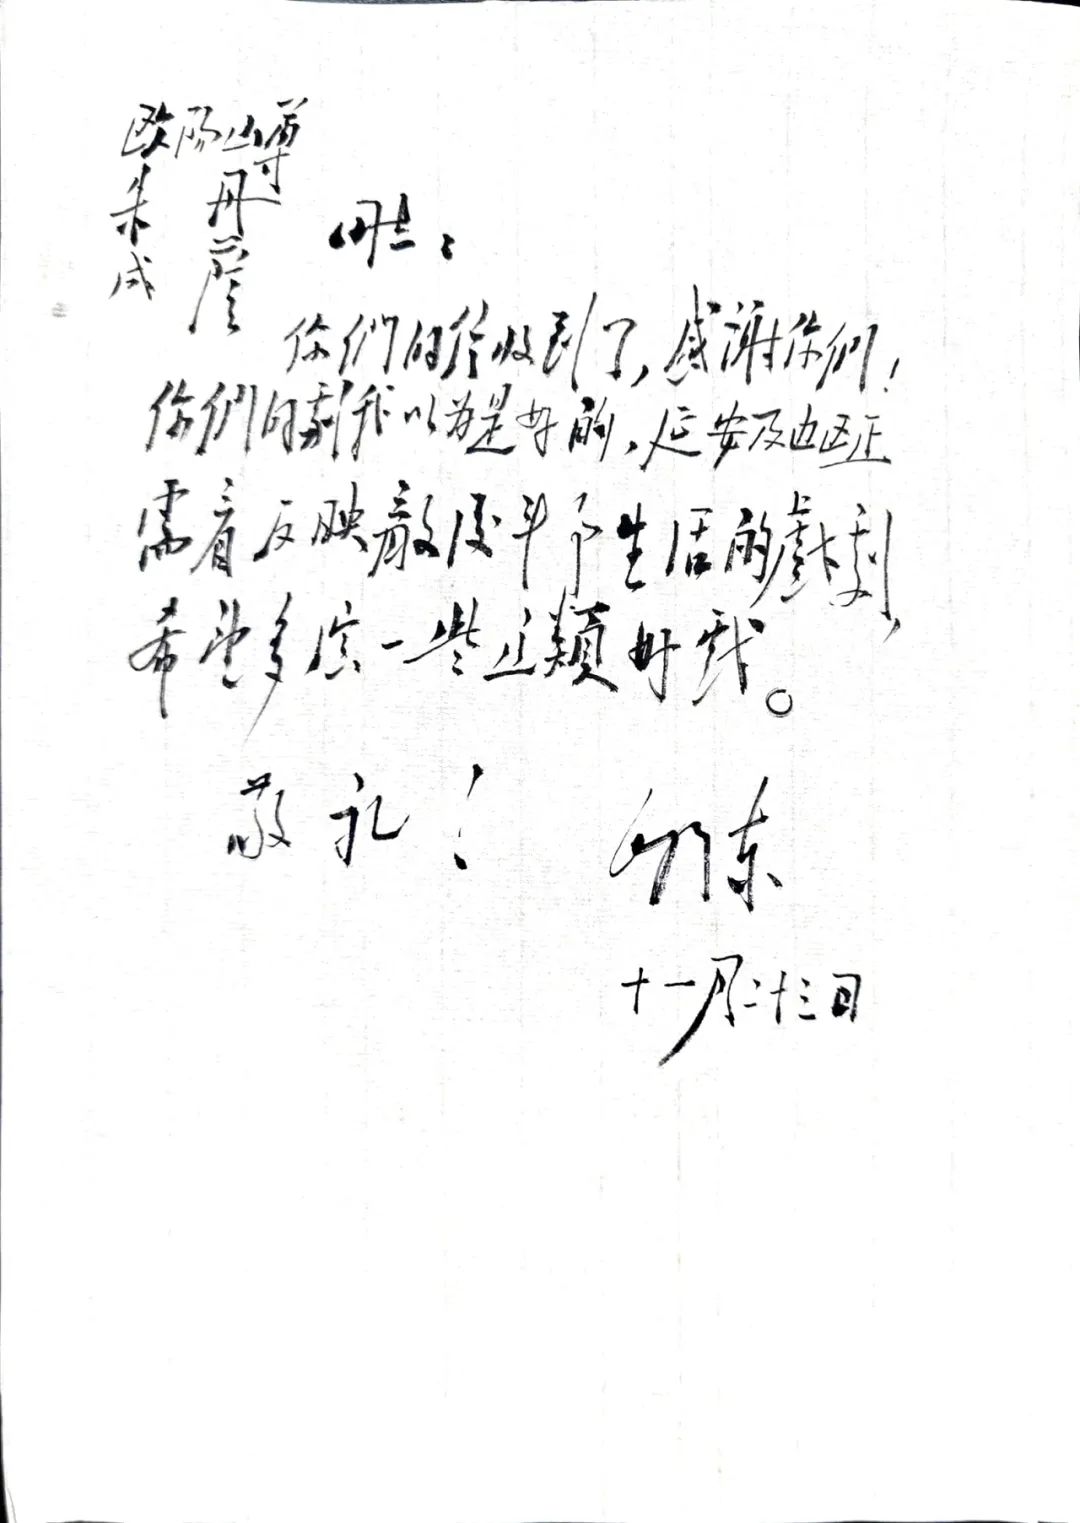 欧阳山尊
朱丹
成荫
同志：
你們的信收到了，感謝你們！
你們的剧我以为是好的，延安及边区正
需看反映敵后斗争生活的戲剧，
希望多演一些这類好戏。
敬礼！
毛泽东
十一月二十三日